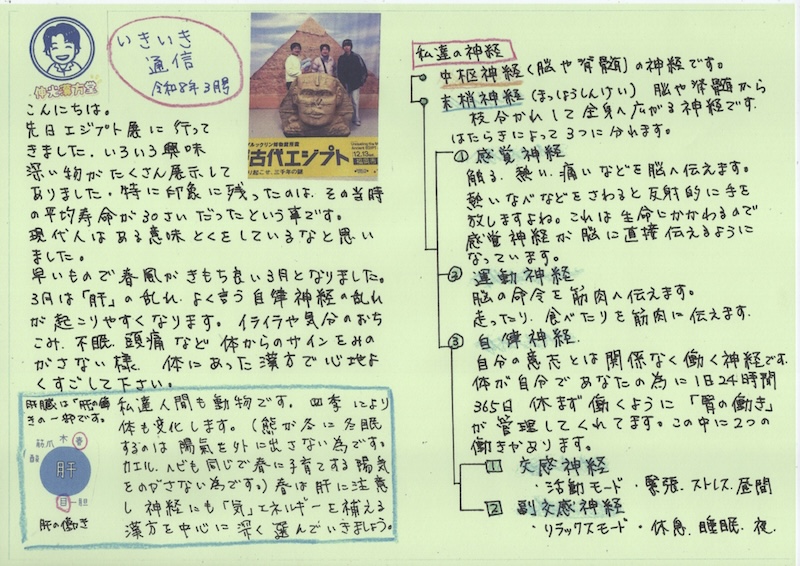 いきいき
通信
令和8年3月号
伸光漢方堂
こんにちは。
先日エジプト展に行って
きました。いろいろ興味
深い物がたくさん展示して
ありました。特に印象に残ったのは、その当時
の平均寿命が30さいだったという事です。
現代人はある意味とくをしているなと思い
ました。
早いもので春風がきもち良い3月となりました。
3月は「肝」の乱れ、よく言う自律神経の乱れ
が起こりやすくなります。イライラや気分のおち
こみ、不眠、頭痛など体からのサインをみの
がさない様、体にあった漢方で心地よ
くすごして下さい。
ブルックリン博物館所蔵
古代エジプト
12.13
福岡市
肝臓は「肝の働
きの一部です。
筋 爪 木 春
酸
肝
目 胆
肝の働き
私達人間も動物です。四季により
体も変化します。(熊が冬に冬眠
するのは陽氣を外に出さない為です。
カエル、ヘビも同じで春に子育てする陽氣
をのがさない為です。)春は肝に注意
し神経にも「気」エネルギーを補える
漢方を中心に深く選んでいきましょう。
私達の神経
中枢神経(脳や脊髄)の神経です。
末梢神経(まっしょうしんけい) 脳や脊髄から
枝分かれして全身へ広がる神経です.
はたらきによって3つに分れます。
① 感覚神経
触る、熱い、痛いなどを脳へ伝えます。
熱いなべなどをさわると反射的に手を
放しますよね。これは生命にかかわるので
感覚神経が脳に直接伝えるように
なっています。
② 運動神経
脳の命令を筋肉へ伝えます。
走ったり、食べたりを筋肉に伝えます.
③ 自律神経.
自分の意志とは関係なく働く神経です.
体が自分であなたの為に1日24時間
365日 休まず働くように「胃の働き」
が管理してくれてます。この中に2つの
働きがあります。
1 交感神経
・活動モード・緊張.ストレス.昼間
2 副交感神経
・リラックスモード・休息、睡眠、夜.